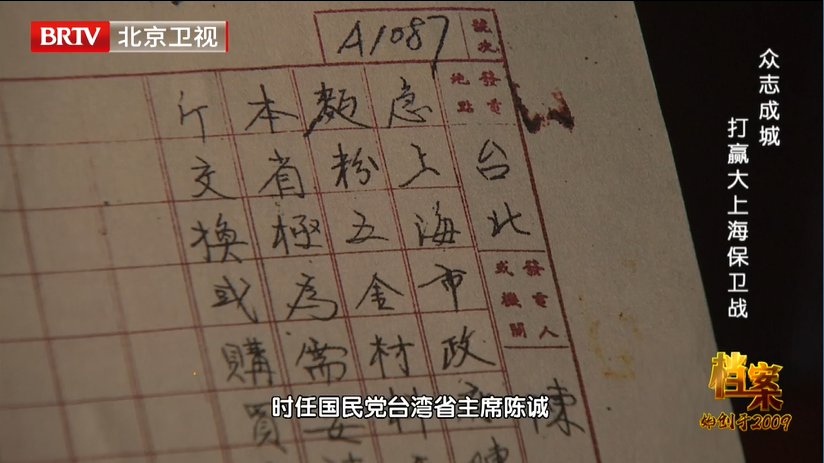 BRTV 北京卫视
A1087
號次
發電地點
台北
發電人或機關
陳
急上海市政
麵粉五金材
本省極為需
斤交換或購買
众志成城
打赢大上海保卫战
档案
始创于2009
时任国民党台湾省主席陈诚